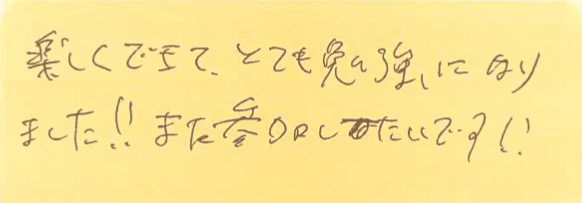 楽しくできて、とても勉強になり
ました!! また参加したいです!!